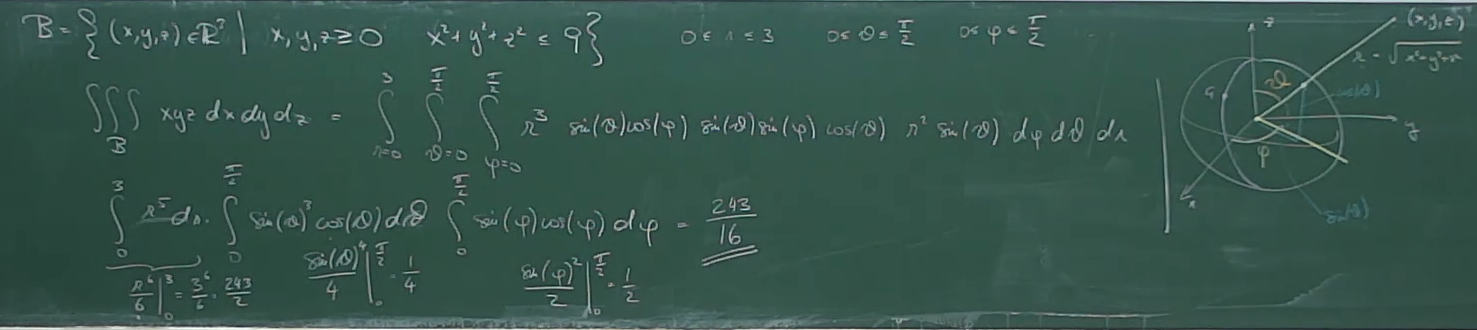 B = { (x,y,z) ∈ ℝ³ | x,y,z ≥ 0 x²+y²+z² ≤ 9 } 0 ≤ r ≤ 3 0 ≤ ϑ ≤ π/2 0 ≤ φ ≤ π/2
∭_B xyz dx dy dz = ∫_{r=0}^{3} ∫_{ϑ=0}^{π/2} ∫_{φ=0}^{π/2} r³ sin(ϑ)cos(φ) sin(ϑ)sin(φ) cos(ϑ) r² sin(ϑ) dφ dϑ dr
∫_0^3 r⁵ dr · ∫_0^{π/2} sin(ϑ)³ cos(ϑ) dϑ ∫_0^{π/2} sin(φ) cos(φ) dφ = 243/16
r⁶/6 |_0^3 = 3⁶/6 = 243/2 sin(ϑ)⁴/4 |_0^{π/2} = 1/4 sin(φ)²/2 |_0^{π/2} = 1/2
z
(x,y,z)
r = √(x²+y²+z²)
ϑ
cos(ϑ)
y
φ
x
sin(ϑ)